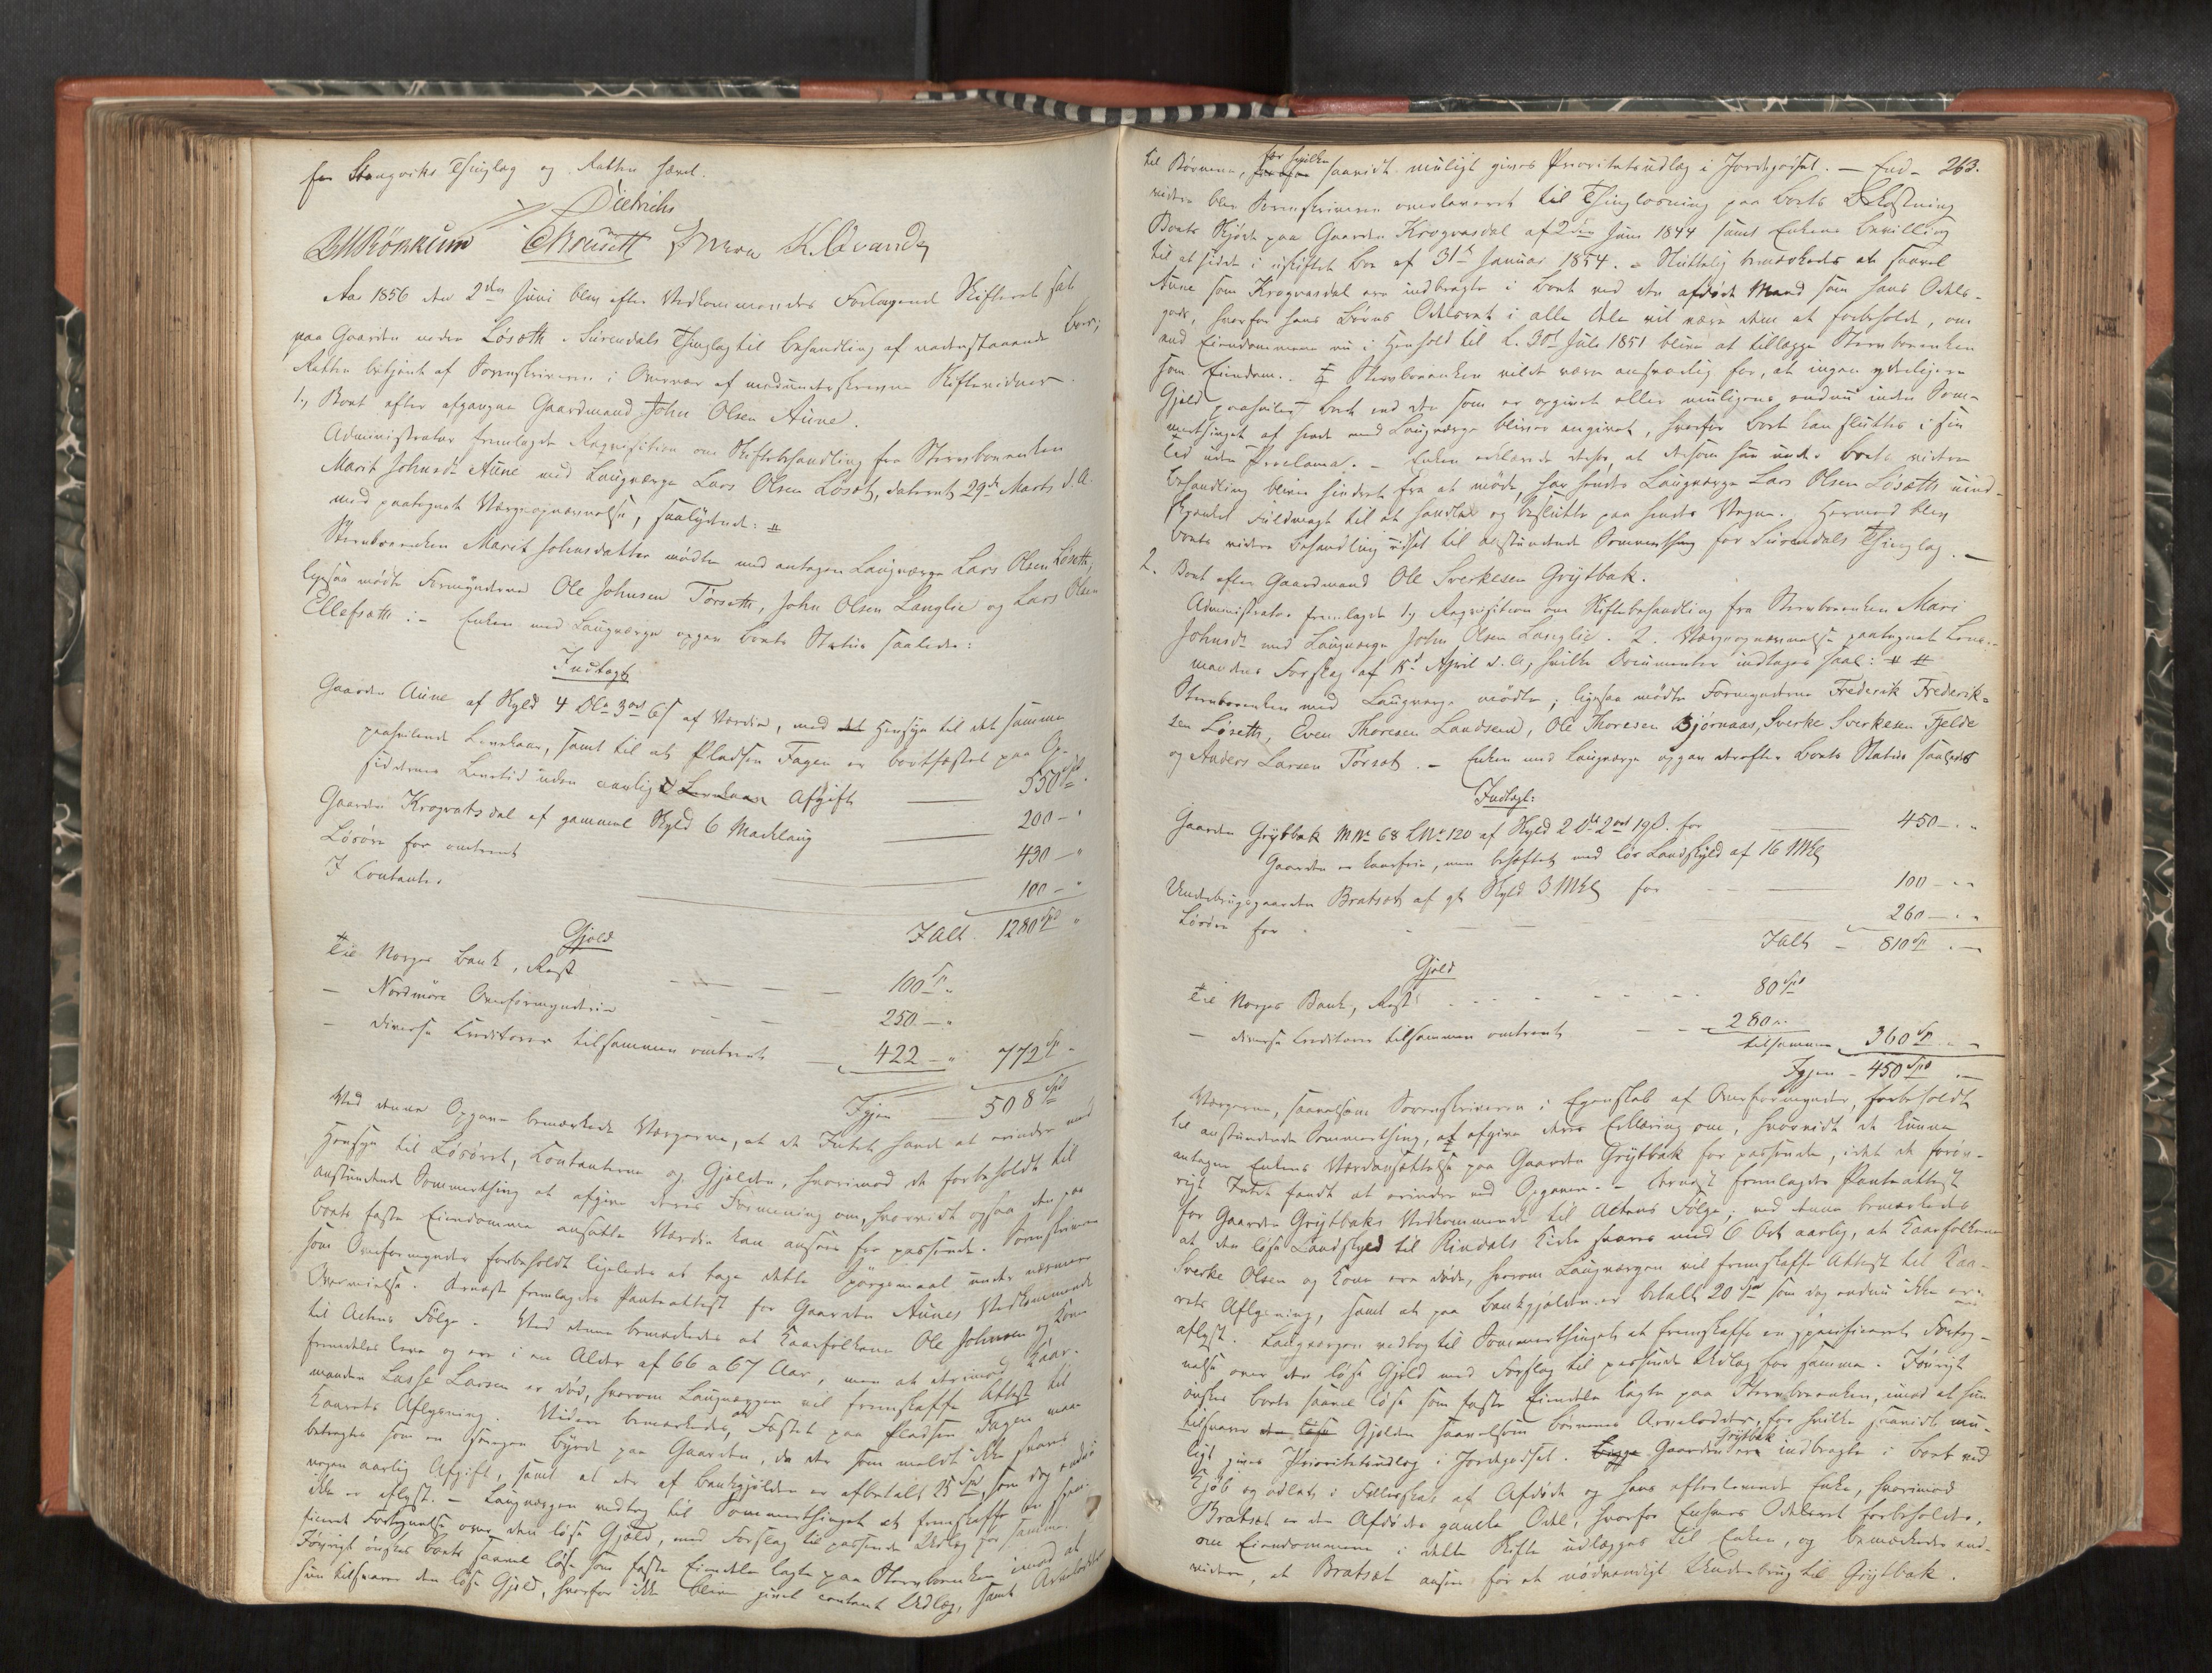 for Stangviks Thinglag og Retten hævet.
Dietrichs
Aar 1856 den 2den Juni blev efter Vedkommendes Forlangende Skifteret sat
paa Gaarden nedre Løsæth i Surendals Thinglag til Behandling af nedenstaaende Boer;
Retten betjent af Sorenskriveren i Overvær af medunderskrevne Skiftevidner.
1., Boet efter afgangne Gaardmand John Olsen Aune.
Administrator fremlagde Requisition om Skiftebehandling fra Stervboenken
Marit Johnsdr Aune med Laugværge Lars Olsen Løsæt, dateret 29de Marts d. A.
med paategnet Værgeopnævnelse, saalydende: #
Stervboenken Marit Johnsdatter mødte med antagen Laugværge Lars Olsen Løseth,
ligesaa mødte Formynderne Ole Johnsen Tørseth, John Olsen Langlie og Lars Olsen
Ellefsæth :- Enken med Laugværge opgav Boets Status saaledes:
Indtægt
Gaarden Aune af Skyld 4 Dlr 3 ort 6 s af Værdie, med det Hensyn til det samme
paahvilende Levekaar, samt til at Pladsen Fagen er bortfæstet paa Op-
siddernes Levetid uden aarlig Levekaar Afgift 550 Spd.
Gaarden Krogvatsdal af gammel Skyld 6 Marklaug 200 - "
Løsøre for omtrent 430 - "
I Contanter 100 - "
Ialt 1280 Spd "
Gjeld
Til Norges Bank, Rest 100 Sp "
- Nordmøre Overformynderie 250 - "
- diverse Creditorer tilsammen omtrent 422 - " 772 Sp -
Igjen 508 Spd
Ved denne Opgave bemærkede Værgerne, at de Intet havde at erindre med
Hensyn til Løsøret, Contanterne og Gjelden, hvorimod de forbeholdt til
anstundende Sommerthing at afgive deres Formening om, hvorvidt ogsaa den paa
Boets faste Eiendomme ansatte Værdie kan ansees for passende. Sorenskriveren
som Overformynder forbeholdt ligeledes at tage dette Spørgsmaal under nærmere
Overveielse. Dernæst fremlagdes Panteattest for Gaarden Aunes Vedkommende
til Actens Følge. Ved denne bemærkedes at Kaarfolkene Ole Johnsen og Kone
fremdeles leve og ere i en Alder af 66 a 67 Aar, men at derimod Kaar-
manden Lasse Larsen er død, hvorom Laugværgen vil fremskaffe Attest til
Kaarets Aflysning. Videre bemærkedes, at Fæstet paa Pladsen Fagen maa
betragtes som en Byrde paa Gaarden, da der som meldt ikke svares
nogen aarlig Afgift, samt at der af Bankgjelden er afbetalt 25 Spd, som dog endnu
ikke er aflyst. - Laugværgen vedtog til Sommerthinget at fremskaffe en speci-
ficeret Fortegnelse over den løse Gjeld, med Forslag til passende Udlæg for samme.
Forøvrigt ønskes Boets saavel løse som faste Eiendele lagte paa Stervboenken imod at
hun tilsvarer den løse Gjeld, hvorfor ikke bliver givet contant Udlæg, samt Arvelodder
263.
til Børnene, for hvilke saavidt muligt gives Prioritetsudlæg i Jordegodset. - End-
videre blev Sorenskriveren overleveret til Thinglæsning paa Boets Bekostning
Boets Skjøde paa Gaarden Krogvasdal af 2den Juni 1844 samt Enkens Bevilling
til at sidde i uskiftet Boe af 31te Januar 1854. - Sluttelig bemærkedes at saavel
Aune som Krogvasdal ere indbragte i Boet ved den afdøde Mand som hans Odels-
gods, hvorfor hans Børns Odelsret i alle Dele vil være dem at forbeholde, om
end Eiendommene nu i Henhold til L. 30te Juli 1851 blive at tillægge Stervboenken
som Eiendom. Stervboenken vilde være ansvarlig for, at ingen yderligere
Gjeld paahviler Boet end den som er opgivet eller muligens endnu inden Som-
merthinget af hende med Laugværge bliver angivet, hvorfor Boet kan sluttes i sin
Tid uden Proclama. - Enken erklærede derpaa, at dersom hun under Boets videre
Behandling bliver hindret fra at møde, har hendes Laugværge Lars Olsen Løsæth uind-
skrænket Fuldmagt til at handle og beslutte paa hendes Vegne. Hermed blev
Boets videre Behandling udsat til anstundende Sommerthing for Surendals Thinglag. -
2. Boet efter Gaardmand Ole Sverkesen Grytbak.
Administrator fremlagde 1., Requisition om Skiftebehandling fra Stervboenken Mari
Johnsdr med Laugværge John Olsen Langlie. 2. Værgeopnævnelse paategnet Lens-
mandens Forslag af 15de April d. A., hvilke Documenter indtages saal: # #
Stervboenken med Laugværge mødte; ligesaa mødte Formynderne Frederik Frederik-
sen Løseth, Even Thoresen Landsem, Ole Thoresen Bjørnaas, Sverke Sverkesen Fjelde
og Anders Larsen Tørset. - Enken med Laugværge opgav derefter Boets Status saaledes
Indtægt:
Gaarden Grytbak M.No 68 L.No 120 af Skyld 2 Dlr 2 ort 19 s. for 450 - "
Gaarden er kaarfrie, men behæftet med løs Landskyld af 16 Mkl
Underbrugsgaarden Bratset af gl Skyld 3 Mkl for 100 - "
Løsøre for 260 - "
Ialt - 810 Sp -
Gjeld
Til Norges Bank, Rest 80 Spd
- diverse Creditorer tilsammen omtrent 280 "
tilsammen 360 Sp
Igjen - 450 Spd -
Værgerne, saavelsom Sorenskriveren i Egenskab af Overformynder, forbeholdt
til anstundende Sommerthing, at afgive deres Erklæring om, hvorvidt de kunne
antage Enkens Værdiansættelse paa Gaarden Grytbak for passende, idet de forøv-
rigt Intet fandt at erindre ved Opgaven. - Dernæst fremlagdes Panteattest
for Gaarden Grytbaks Vedkommende til Actens Følge; ved denne bemærkedes
at den løse Landskyld til Rindals Kirke svares med 6 Ort aarlig, at Kaarfolkene
Sverke Olsen og Kone ere døde, hvorom Laugværgen vil fremskaffe Attest til Kaa-
rets Aflysning, samt at paa Bankgjelden er betalt 20 Spd som dog endnu ikke er
aflyst. Laugværgen vedtog til Sommerthinget at fremskaffe en specificeret Forteg-
nelse over den løse Gjeld med Forslag til passende Udlæg for samme. Forøvrigt
ønskes Boets saavel løse som faste Eiendele lagte paa Stervboenken, imod at hun
tilsvarer den løse Gjelden saavelsom Børnenes Arvelodder, for hvilke saavidt mu-
ligt gives Prioritetsudlæg i Jordegodset. Begge Gaarden Grytbak er indbragte i Boet ved
Kjøb og odlet i Fællesskab af Afdøde og hans efterlevende Enke, hvorimod
Bratset er den Afdødes gamle Odel, hvorfor Odelsret forbeholdes,
om Eiendommene i dette Skifte udlægges til Enken, og bemærkedes end-
videre, at Bratset ansees for et nødvendigt Underbrug til Grytbak.